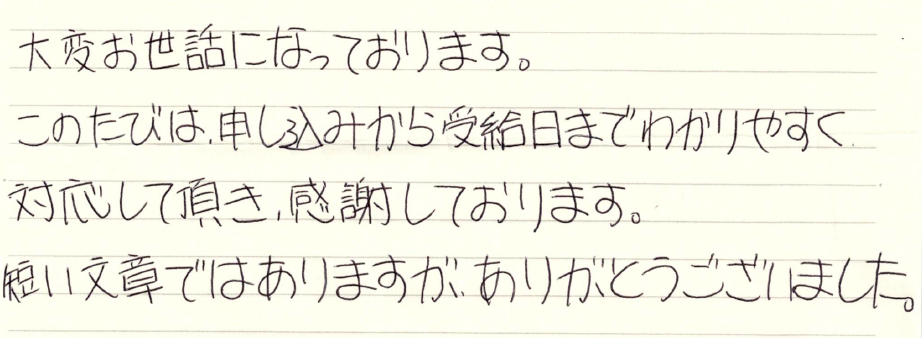 大変お世話になっております。
このたびは、申し込みから受給日までわかりやすく
対応して頂き、感謝しております。
短い文章ではありますが、ありがとうございました。